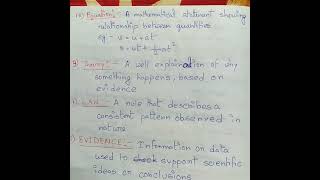 10) Equation :- A mathematical statement showing
relationship between quantities
eg - v = u + at
s = ut + ½ at²
9) Theory :- A well explanation of why
something happens, based on
evidence
LAW :- A rule that describes a
consistent pattern observed in
nature
EVIDENCE :- Information or data
used to support scientific
ideas or conclusions